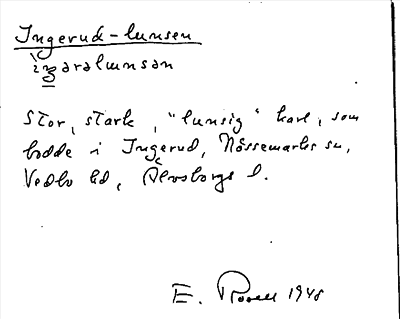 Ingerud-lunsen
Stor, stark, "lunsig" karl, som
bodde i Ingerud, Nössemarks sn,
Vedbo hd, Älvsborgs l.
E. 1948